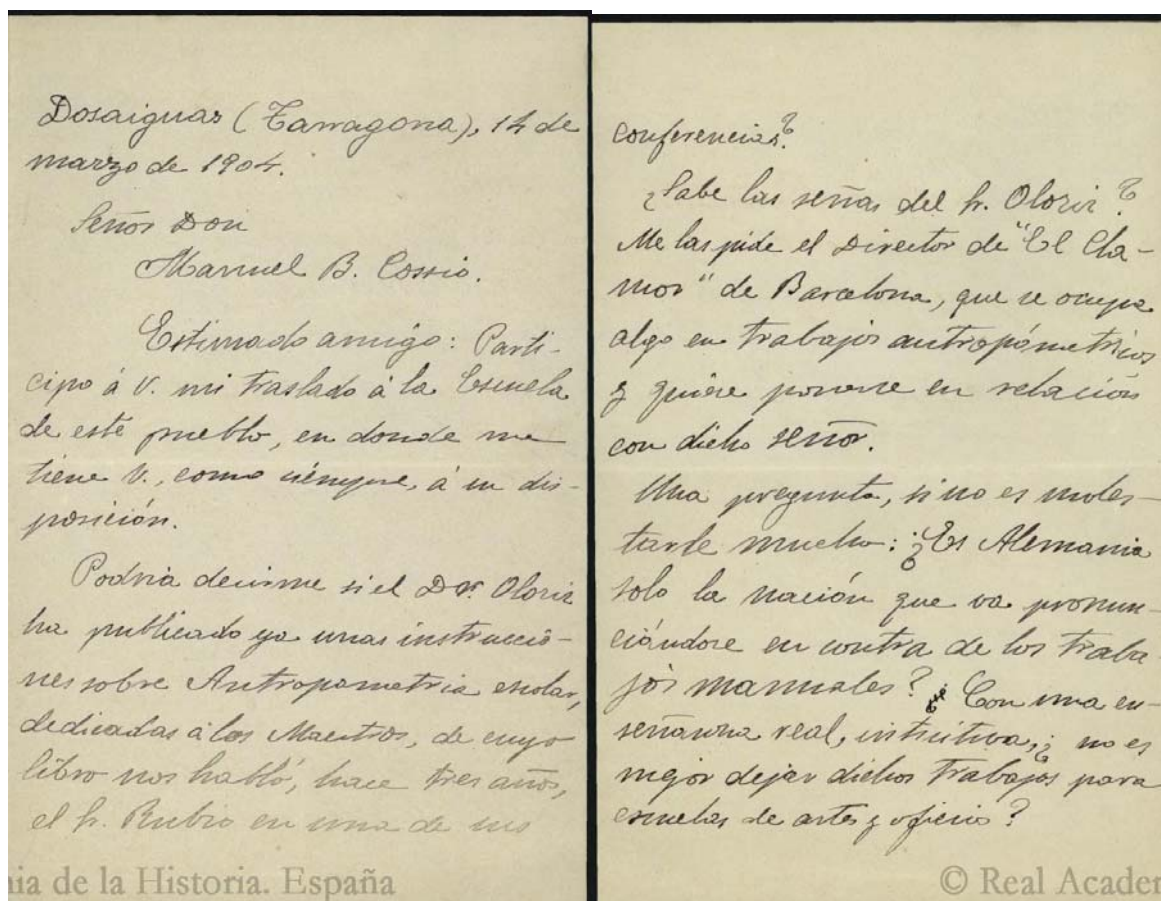 Dosaiguas (Tarragona), 14 de
marzo de 1904.
Señor Don
Manuel B. Cossio.
Estimado amigo: Parti-
cipo á V. mi traslado á la Escuela
de este pueblo, en donde me
tiene V., como siempre, á su dis-
posición.
Podria decirme si el Dor. Oloriz
ha publicado ya unas instruccio-
nes sobre Antropometria escolar,
dedicadas á los Maestros, de cuyo
libro nos habló, hace tres años,
el Sr. Rubio en una de sus
conferencias?
¿Sabe las señas del Sr. Oloriz?
Me las pide el Director de "El Cla-
mor" de Barcelona, que se ocupa
algo en trabajos antropómetricos
y quiere ponerse en relación
con dicho señor.
Una pregunta, si no es moles-
tarle mucho: ¿Es Alemania
solo la nación que va pronun-
ciándose en contra de los traba-
jos manuales? Con una en-
señanza real, intuitiva, ¿no es
mejor dejar dichos trabajos para
escuelas de artes y oficios?
ia de la Historia. España
© Real Academ